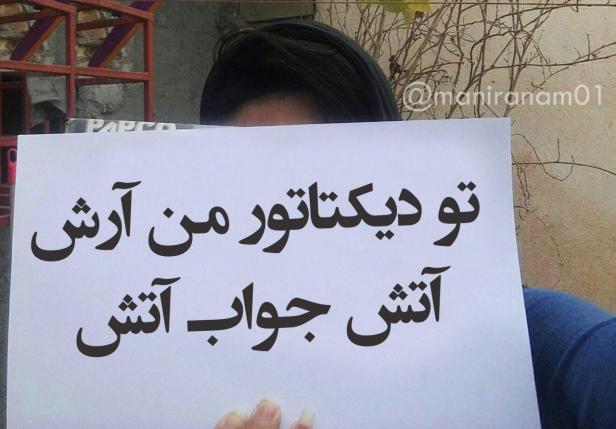 @maniranam01
تو دیکتاتور من آرش
آتش جواب آتش